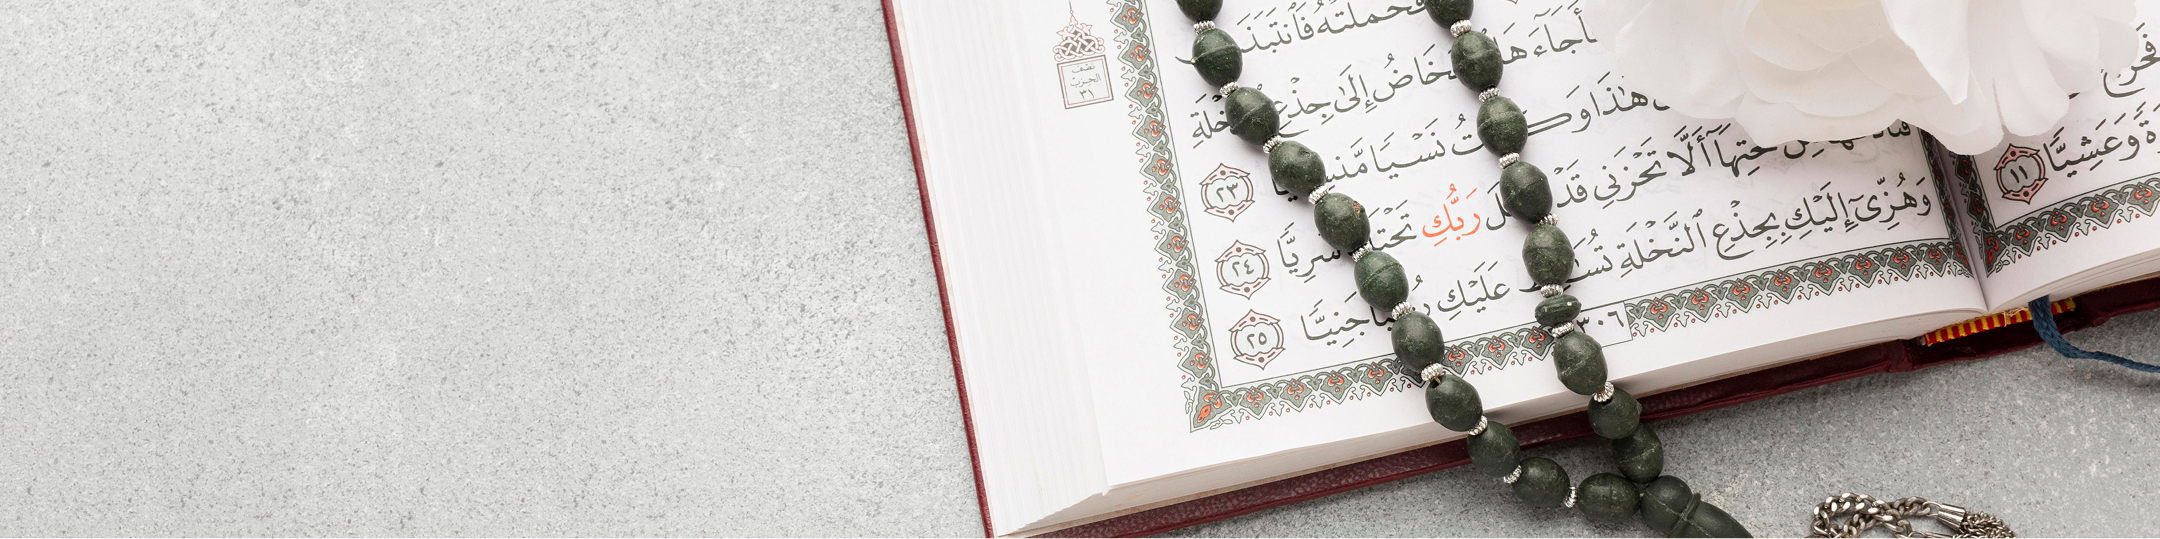 فَحَمَلَتْهُ فَٱنتَبَذَ
فَأَجَآءَهَا ٱلْمَخَاضُ إِلَىٰ جِذْعِ ٱلنَّخْلَةِ
هَٰذَا وَكُنتُ نَسْيًا مَّنسِيًّا ٢٣
تَحْتِهَآ أَلَّا تَحْزَنِى قَدْ جَعَلَ رَبُّكِ تَحْتَكِ سَرِيًّا ٢٤
وَهُزِّىٓ إِلَيْكِ بِجِذْعِ ٱلنَّخْلَةِ تُسَٰقِطْ عَلَيْكِ رُطَبًا جَنِيًّا ٢٥
٣٠٦
نصف
الحزب
٣١
فَخَرَجَ
وَعَشِيًّا ١١